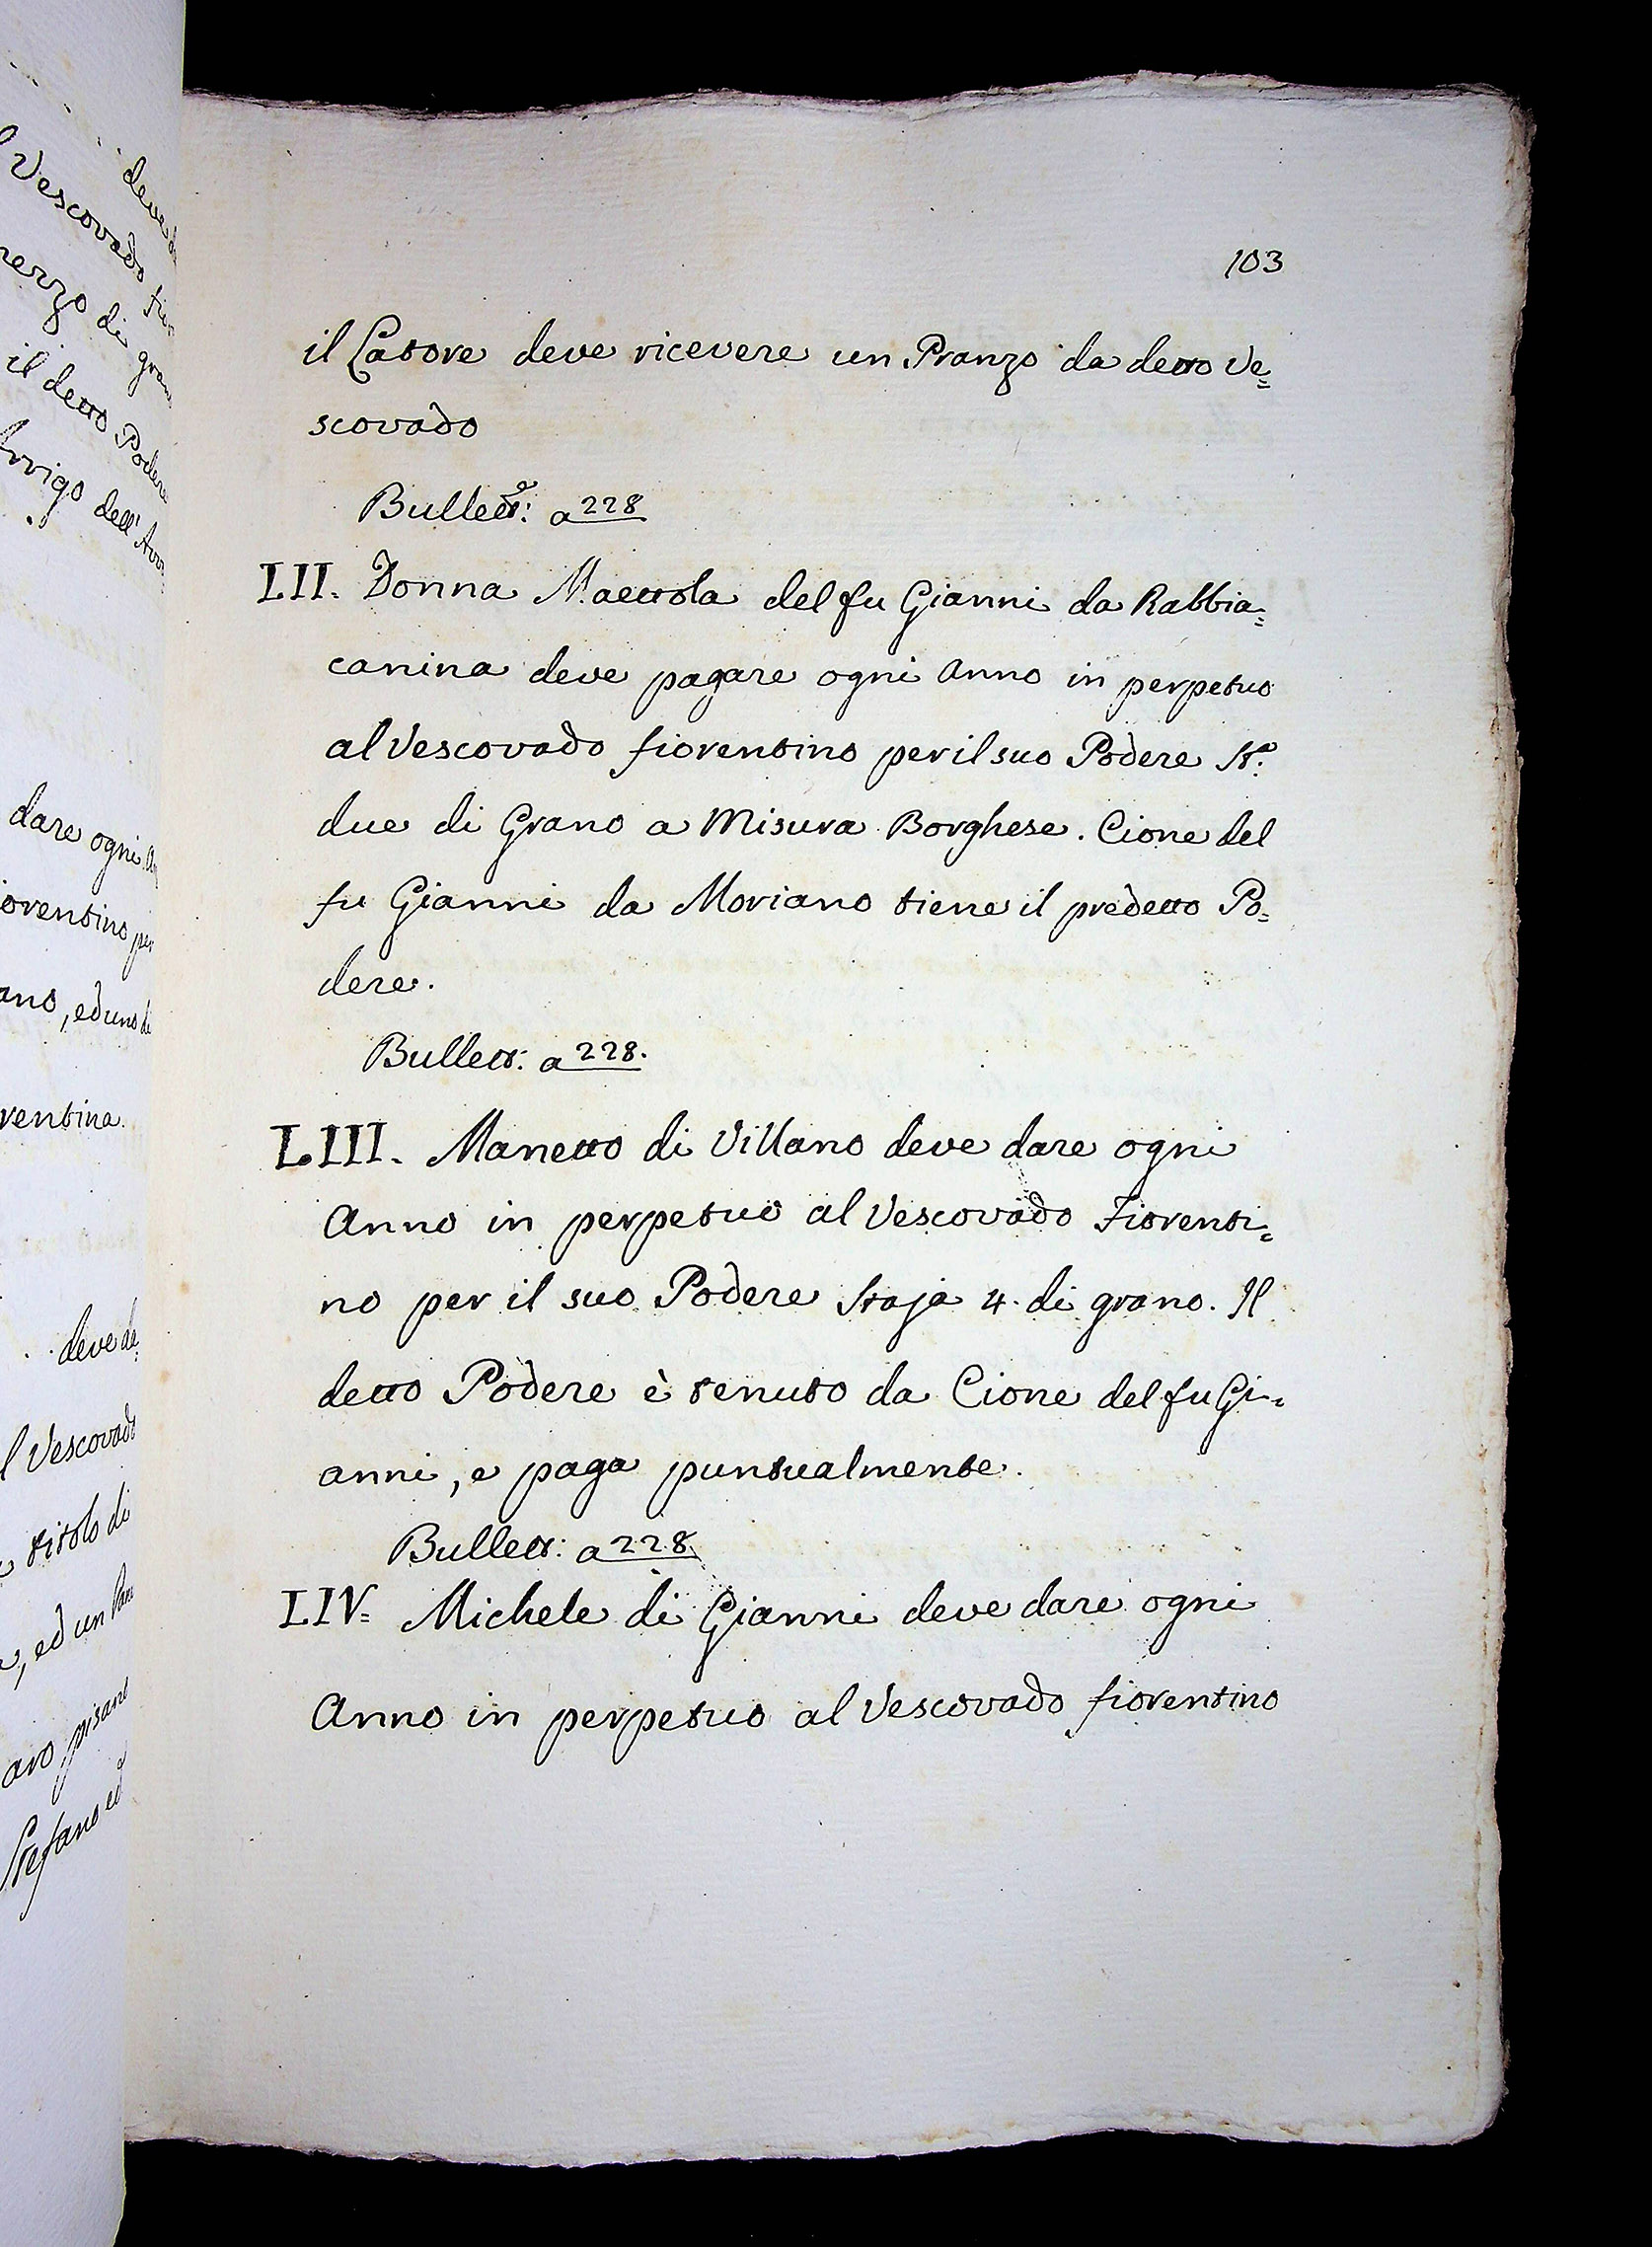 deve d
Vescovado fio
merzo di gran
il detto Podere
Arrigo dell' Avv
dare ogni A
iorentino per
ano, ed uno di
rentina.
deve da
l Vescovado
titolo di
, ed un Pane
aro pisane
Stefano ed
103
il Latore deve ricevere un Pranzo da detto Ve=
scovado
Bullett.e: a 228
LII. Donna Maettola del fu Gianni da Rabbia=
canina deve pagare ogni Anno in perpetuo
al Vescovado fiorentino per il suo Podere St.a
due di Grano a Misura Borghese. Cione del
fu Gianni da Moriano tiene il predetto Po=
dere.
Bullett: a 228.
LIII. Manetto di Villano deve dare ogni
Anno in perpetuo al Vescovado Fiorenti=
no per il suo Podere Staja 4. di grano. Il
detto Podere è tenuto da Cione del fu Gi=
anni, e paga puntualmente.
Bullett: a 228
LIV= Michele di Gianni deve dare ogni
Anno in perpetuo al Vescovado fiorentino